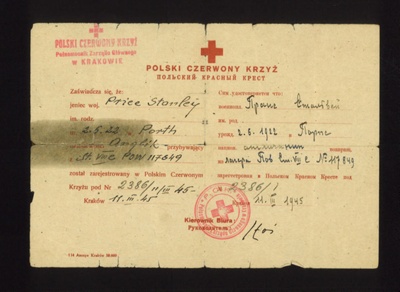 POLSKI CZERWONY KRZYŻ
Pełnomocnik Zarządu Głównego
w KRAKOWIE
POLSKI CZERWONY KRZYŻ
ПОЛЬСКИЙ КРАСНЫЙ КРЕСТ
Zaświadcza się, że:
jeniec woj. Price Stanley
im. rodz.
ur. 2.8.22 w Porth
Anglik przybywający
St. VIII C POW 117849
został zarejestrowany w Polskim Czerwonym
Krzyżu pod Nr 2386/II/III 45-
Kraków 11.III.45-
Сим удостоверяется что:
военнопл. Прайс Стэнлей
им. род.
урожд. 2.8.1922 в Порт
национ.
лагерь № 117849
зарегестрирован в Польском Красном Кресте под
2386/I
Краков 11. III 1945
Kierownik Biura
Руководитель